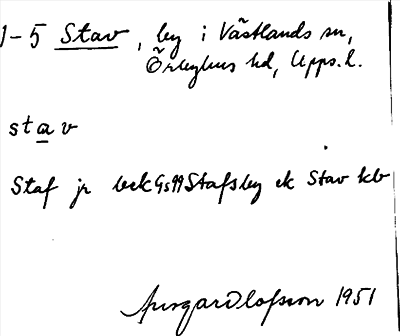 1-5 Stav, by i Västlands sn,
Örbyhus hd, Upps. l.
stav
Staf jr Stafsby ek Stav kb
Olofsson 1951